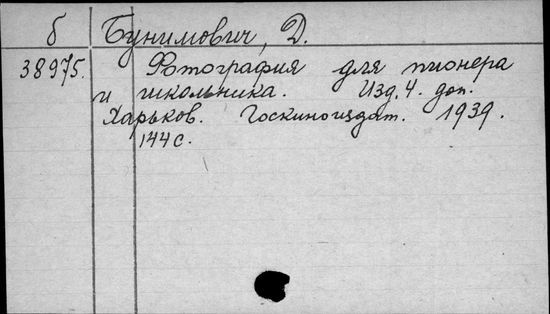 б Бунимович, Д.
38975. Фотография для пионера
и школьника. Изд. 4. доп.
Харьков. Госкиноиздат. 1939.
144 с.